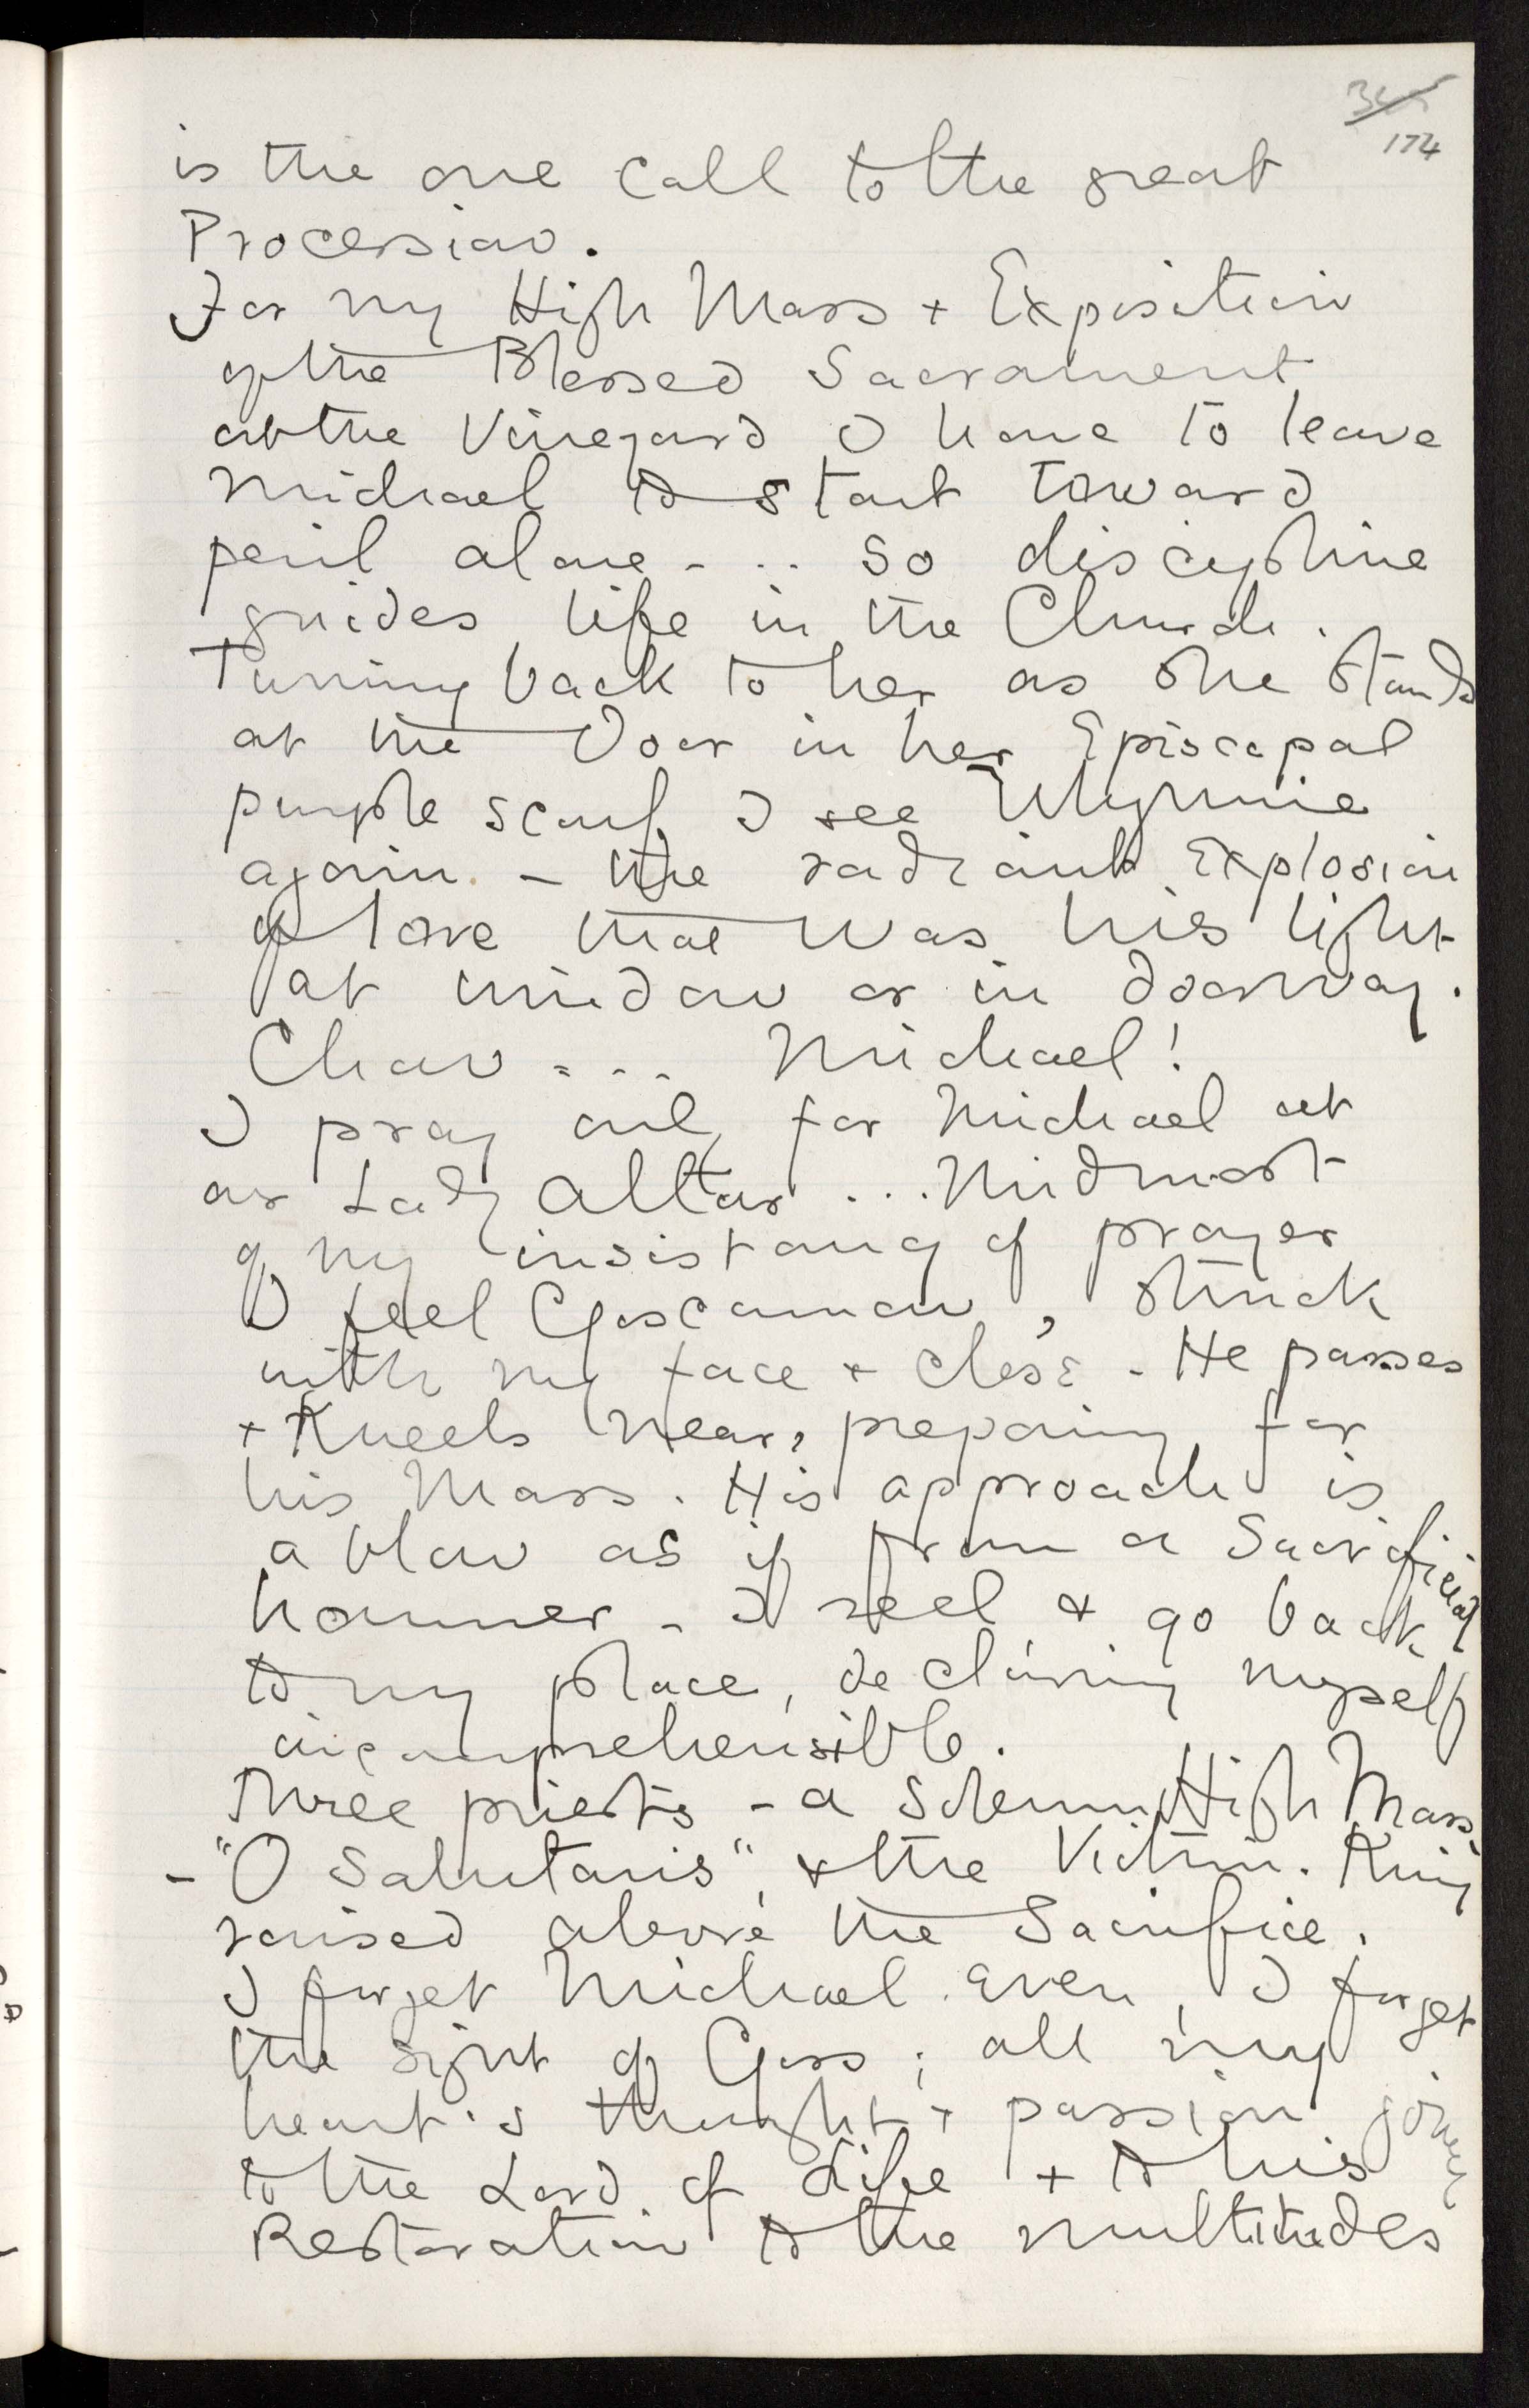 174
is the one call to the great
Procession.
For my High Mass + Exposition
of the Blessed Sacrament
at the Vineyard I have to leave
Michael to start toward
peril alone - .. so discipline
guides life in the Church.
Turning back to her as she stands
at the Door in her Episcopal
purple scarf I see Whymmie
again - the radiant Explosion
of love that was his light
at window or in doorway.
Chow ... Michael!
I pray only for Michael at
our Lady Altar ... Midmost
of my insistancy of prayer
I feel Goscannon, struck
with my face + close - He passes
+ Kneels near, preparing for
his Mass. His approach is
a blow as if from a Sacrificial
hammer - I reel & go back
to my place, declaring myself
incomprehensible.
Three priests - a Solemn High Mass,
- "O Salutaris", & the Victim. King
raised above the Sacrifice.
I forget Michael even, I forget
the sight of Goss; all my
heart's thought + passion joining
to the Lord of Life + to his
Restoration to the multitudes